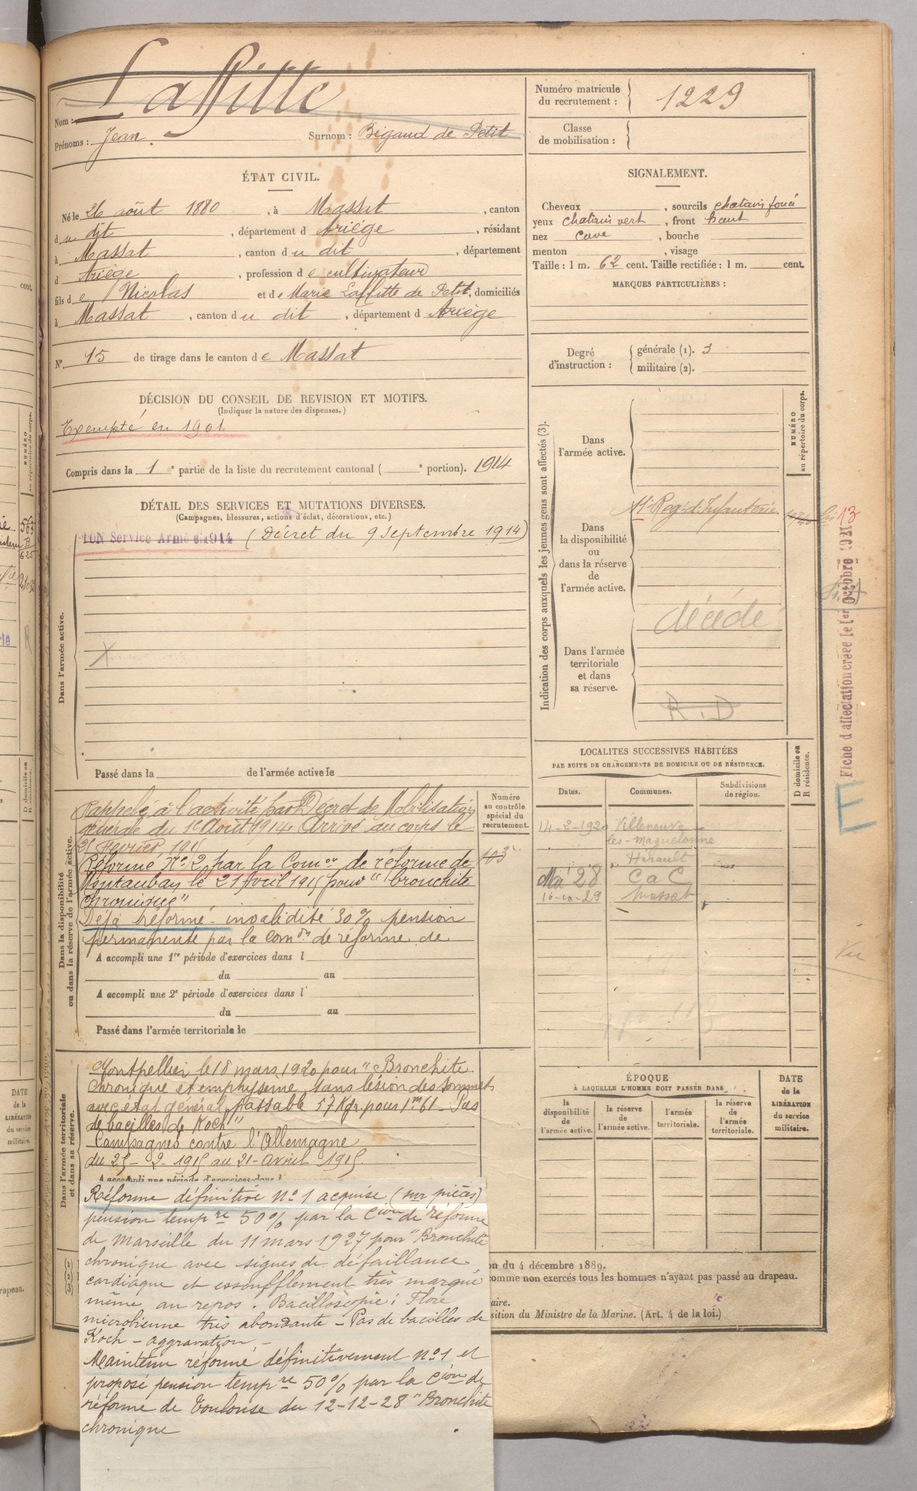 Nom : Laffitte
Prénoms : Jean Surnom : Bigaud de Petit
Numéro matricule du recrutement : 1229
Classe de mobilisation :
ÉTAT CIVIL.
Né le 26 août 1880, à Massat, canton
du dit, département d Ariège, résidant
à Massat, canton du dit, département
d Ariège, profession de cultivateur
fils de Nicolas et de Marie Laffitte de Petit, domiciliés
à Massat, canton du dit, département d Ariège
N° 15 de tirage dans le canton de Massat
SIGNALEMENT.
Cheveux , sourcils chatain foncé
yeux chatain vert, front haut
nez cave, bouche
menton , visage
Taille : 1 m. 62 cent. Taille rectifiée : 1 m. cent.
MARQUES PARTICULIÈRES :
Degré d'instruction : générale (1). 3
militaire (2).
DÉCISION DU CONSEIL DE REVISION ET MOTIFS.
(Indiquer la nature des dispenses.)
Exempté en 1901
Compris dans la 1e partie de la liste du recrutement cantonal ( e portion). 1914
DÉTAIL DES SERVICES ET MUTATIONS DIVERSES.
(Campagnes, blessures, actions d'éclat, décorations, etc.)
Service Armé 1914 (Décret du 9 septembre 1914)
Dans l'armée active.
Passé dans la de l'armée active le
Indication des corps auxquels les jeunes gens sont affectés (3).
NUMÉRO au répertoire du corps.
Dans l'armée active.
Dans la disponibilité ou dans la réserve de l'armée active.
Regt d'Infanterie
décédé
Dans l'armée territoriale et dans sa réserve.
R.D
Fiche d'affectation créée le 1er Octobre
Dans la disponibilité ou dans la réserve de l'armée active.
Numéro au contrôle spécial du recrutement.
Rappelé à l'activité par Décret de Mobilisation
générale du 1er Août 1914. Arrivé au corps le
février
Réformé N° 2 par la Comon de réforme de
Montauban le 21 Avril 1915 pour "bronchite
chronique"
Déjà réformé - invalidité 30% pension
permanente par la comon de réforme de
A accompli une 1re période d'exercices dans l
du au
A accompli une 2e période d'exercices dans l
du au
Passé dans l'armée territoriale le
LOCALITÉS SUCCESSIVES HABITÉES
PAR SUITE DE CHANGEMENTS DE DOMICILE OU DE RÉSIDENCE.
Dates. Communes. Subdivisions de région. D domicile ou R résidence.
14-2-1920 Villeneuve-
les-maguelonne
Hérault
Mai 28 C à C
16-10-29 Massat
Vu
Dans l'armée territoriale et dans sa réserve.
Montpellier le 18 mars 1920 pour "Bronchite
Chronique et emphysème, sans lésion des sommets
avec état général passable 57 Kgr pour 1m61 - Pas
de bacilles de Koch"
Campagnes contre l'Allemagne
du 25-2-1915 au 21 Avril 1915
A accompli une période d'exercices dans l
Réforme définitive n° 1 acquise (sur pièces)
pension tempre 50% par la Cion de réforme
de Marseille du 11 mars 1927 pour "Bronchite
chronique avec signes de défaillance
cardiaque et essoufflement très marqué
même au repos. Bacilloscopie : Flore
microbienne très abondante - Pas de bacilles de
Koch - aggravation
Maintenu réformé définitivement n° 1 et
proposé pension tempre 50% par la Cion de
réforme de Toulouse du 12-12-28 "Bronchite
chronique
ÉPOQUE
À LAQUELLE L'HOMME DOIT PASSER DANS
la disponibilité de l'armée active. la réserve de l'armée active. l'armée territoriale. la réserve de l'armée territoriale.
DATE de la LIBÉRATION du service militaire.
on du 4 décembre 1889.
omme non exercés tous les hommes n'ayant pas passé au drapeau.
aire.
sition du Ministre de la Marine. (Art. 4 de la loi.)